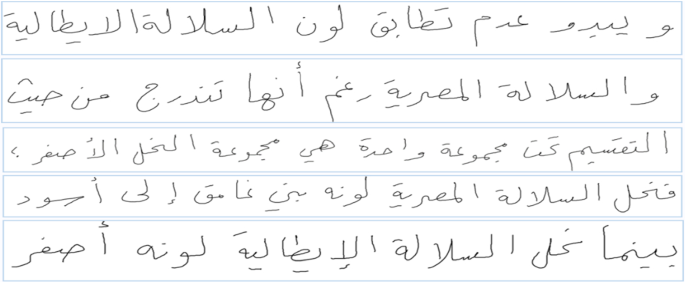 و يبدو عدم تطابق لون السلالة الايطالية
والسلالة المصرية رغم أنها تندرج من حيث
التقسيم تحت مجموعة واحدة هي مجموعة النحل الأصفر ،
فنحل السلالة المصرية لونه بني غامق إلى أسود
بينما نحل السلالة الإيطالية لونه أصفر